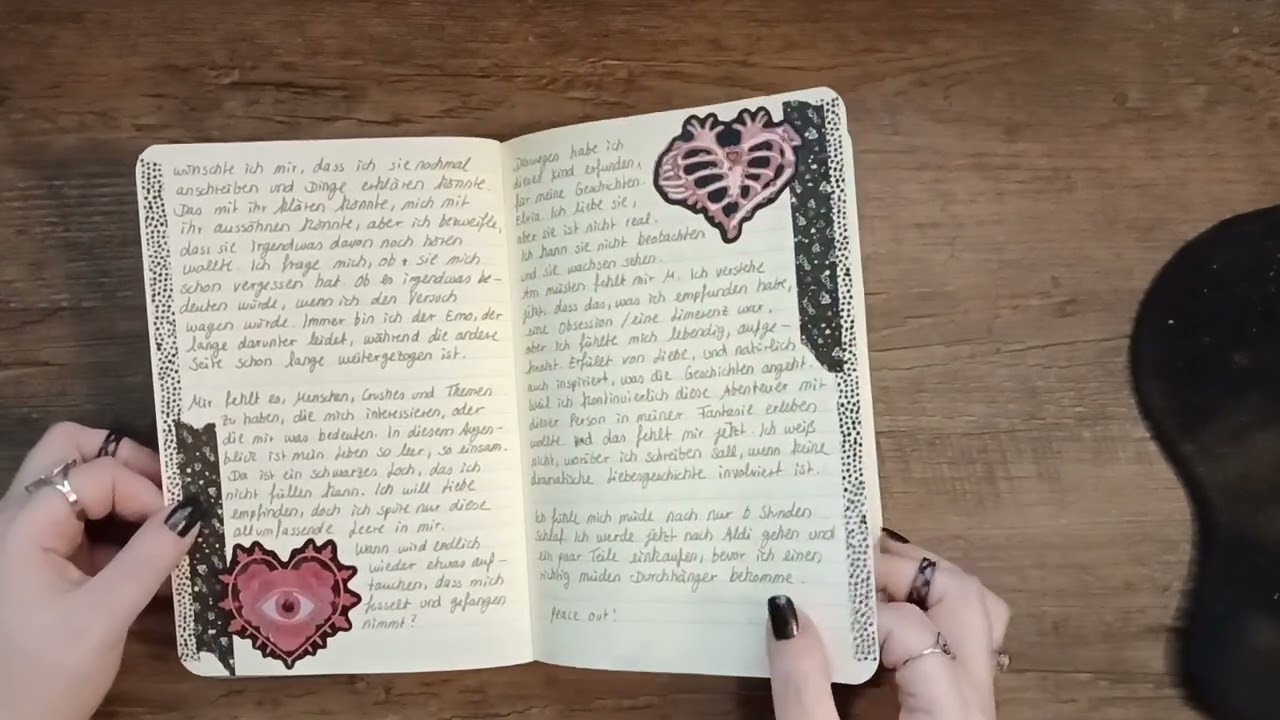 wünschte ich mir, dass ich sie nochmal
anschreiben und Dinge erklären könnte.
Das mit ihr klären könnte, mich mit
ihr aussöhnen könnte, aber ich bezweifle,
dass sie irgendwas davon noch hören
wollte. Ich frage mich, ob sie mich
schon vergessen hat. Ob es irgendwas be-
deuten würde, wenn ich den Versuch
wagen würde. Immer bin ich der Emo, der
lange darunter leidet, während die andere
Seite schon lange weitergezogen ist.
Mir fehlt es, Menschen, Crushes und Themen
zu haben, die mich interessieren, oder
die mir was bedeuten. In diesem Augen-
blick ist mein Leben so leer, so einsam.
Da ist ein schwarzes Loch, das ich
nicht füllen kann. Ich will Liebe
empfinden, doch ich spüre nur diese
allumfassende Leere in mir.
Wann wird endlich
wieder etwas auf-
tauchen, dass mich
fesselt und gefangen
nimmt?
Deswegen habe ich
dieses Kind erfunden,
für meine Geschichten.
Elvia. Ich liebe sie,
aber sie ist nicht real.
Ich kann sie nicht beobachten
und sie wachsen sehen.
Am meisten fehlt mir M. Ich verstehe
jetzt, dass das, was ich empfunden habe,
eine Obsession / eine Limerenz war,
aber ich fühlte mich lebendig, aufge-
heizt. Erfüllt von Liebe, und natürlich
auch inspiriert, was die Geschichten angeht.
Weil ich kontinuierlich diese Abenteuer mit
dieser Person in meiner Fantasie erleben
wollte. Und das fehlt mir jetzt. Ich weiß
nicht, worüber ich schreiben soll, wenn keine
dramatische Liebesgeschichte involviert ist.
Ich fühle mich müde nach nur 6 Stunden
Schlaf. Ich werde jetzt nach Aldi gehen und
ein paar Teile einkaufen, bevor ich einen
richtig müden Durchhänger bekomme.
Peace out!